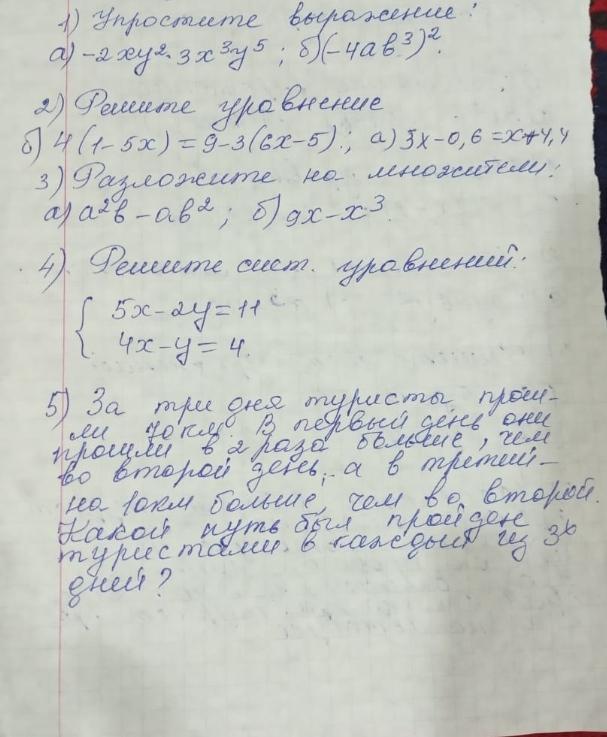 1) Упростите выражение:
а) -2xy²· 3x³y⁵ ; б)(-4ab³)².
2) Решите уравнение
б) 4(1-5x)=9-3(6x-5); а) 3x-0,6=x+4,4
3) Разложите на множители:
а) a²b-ab²; б) 9x-x³.
4) Решите сист. уравнений:
{ 5x-2y=11
4x-y=4.
5) За три дня туристы прош-
ли 70км. В первый день они
прошли в 2 раза больше, чем
во второй день, а в третий-
на 10км больше, чем во второй.
Какой путь был пройден
туристами в каждый из 3х
дней?